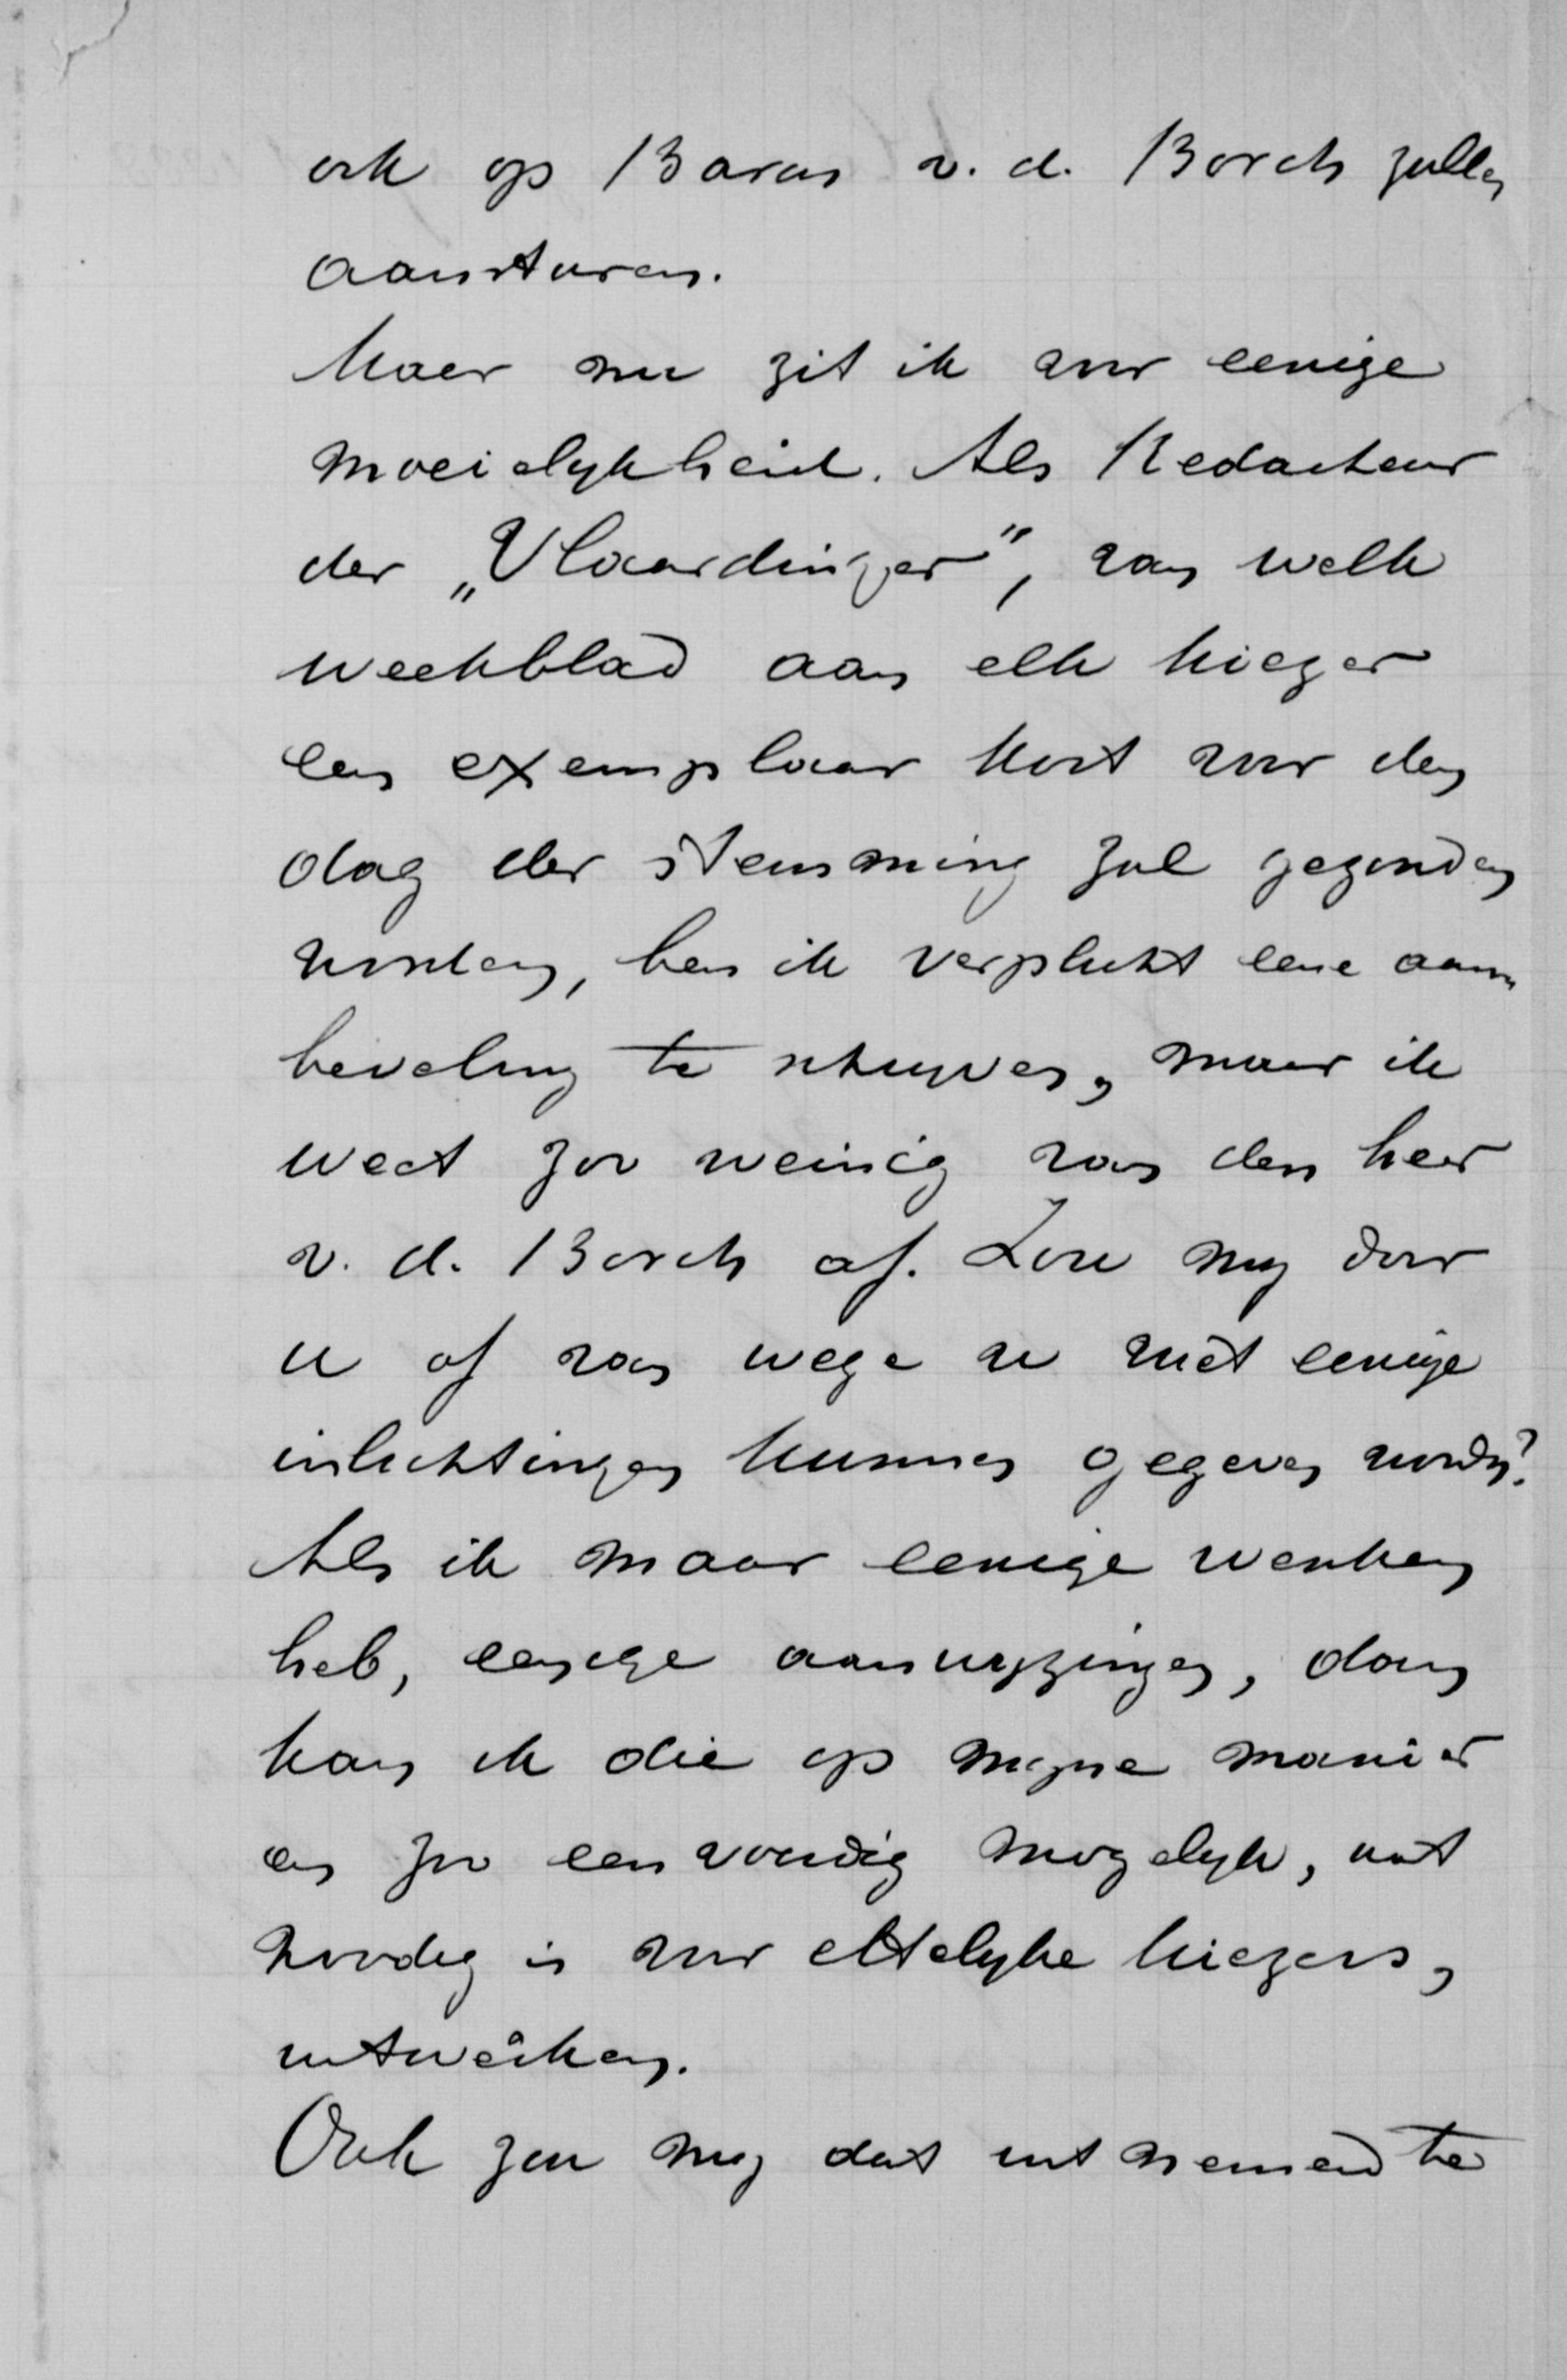 ook op Baron v. d. Borch zullen
aansturen.
Maar nu zit ik voor eenige
moeielykheid. Als Redacteur
der „Vlaardinger”, van welk
weekblad aan elk kiezer
een exemplaar kort voor den
dag der stemming zal gezonden
worden, ben ik verplicht eene aan
beveling te schryven, maar ik
weet zoo weinig van den heer
v. d. Borch af. Zou my door
u of van wege u niet eenige
inlichtingen kunnen gegeven worden?
Als ik maar eenige wenken
heb, eenige aanwyzingen, dan
kan ik die op myne manier
en zoo eenvoudig mogelyk, wat
noodig is voor ettelyke kiezers,
uitwerken.
Ook zou my dat uitnemend te